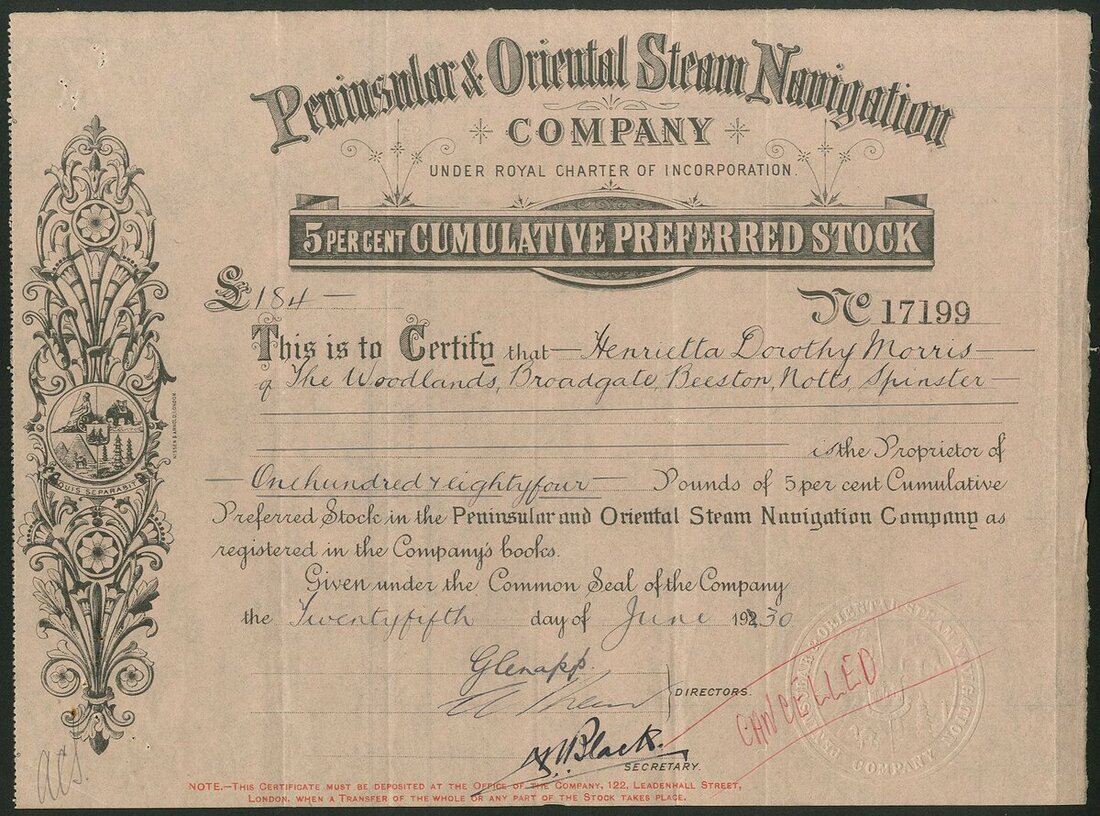 Peninsular & Oriental Steam Navigation
COMPANY
UNDER ROYAL CHARTER OF INCORPORATION.
5 PER CENT CUMULATIVE PREFERRED STOCK
£184 —
No 17199
This is to Certify that — Henrietta Dorothy Morris —
of The Woodlands, Broadgate, Beeston, Notts, Spinster —
is the Proprietor of
— One hundred & eighty four — Pounds of 5 per cent Cumulative
Preferred Stock in the Peninsular and Oriental Steam Navigation Company as
registered in the Company's books.
Given under the Common Seal of the Company
the Twenty fifth day of June 1930
Glenapp.
DIRECTORS.
CANCELLED
Black.
SECRETARY.
NOTE.—THIS CERTIFICATE MUST BE DEPOSITED AT THE OFFICE OF THE COMPANY, 122, LEADENHALL STREET,
LONDON, WHEN A TRANSFER OF THE WHOLE OR ANY PART OF THE STOCK TAKES PLACE.
QUIS SEPARABIT
NISSEN & ARNOLD, LONDON
PENINSULAR & ORIENTAL STEAM NAVIGATION COMPANY